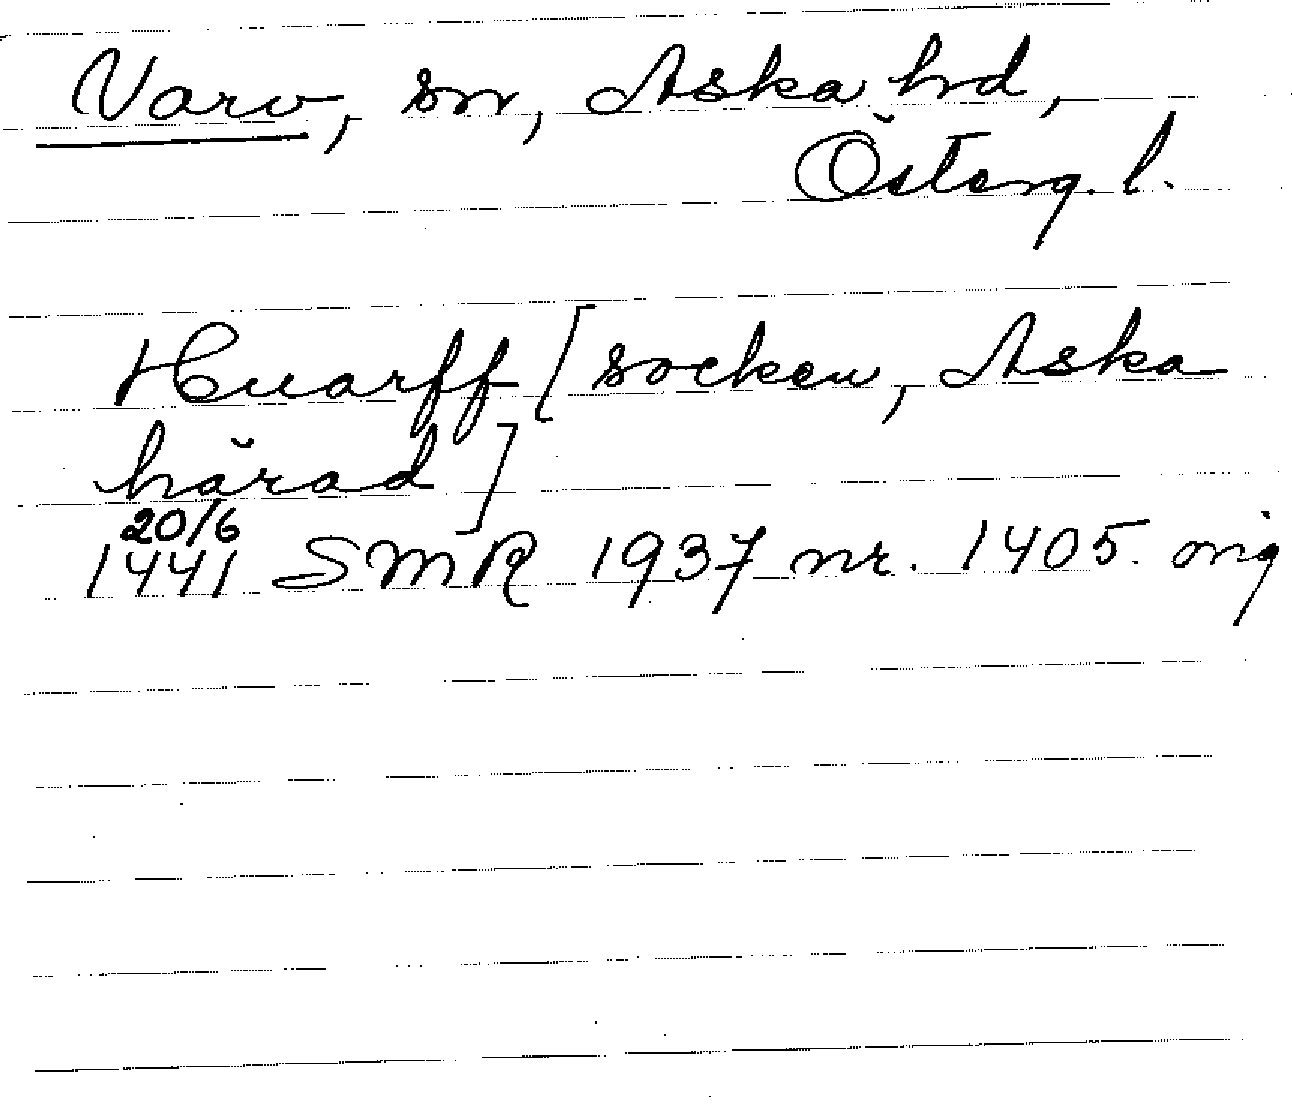 Varv, sn, Aska hd,
Österg. l.
Huarff [socken, Aska
härad]
20/6
1441 SMR 1937 nr. 1405. orig